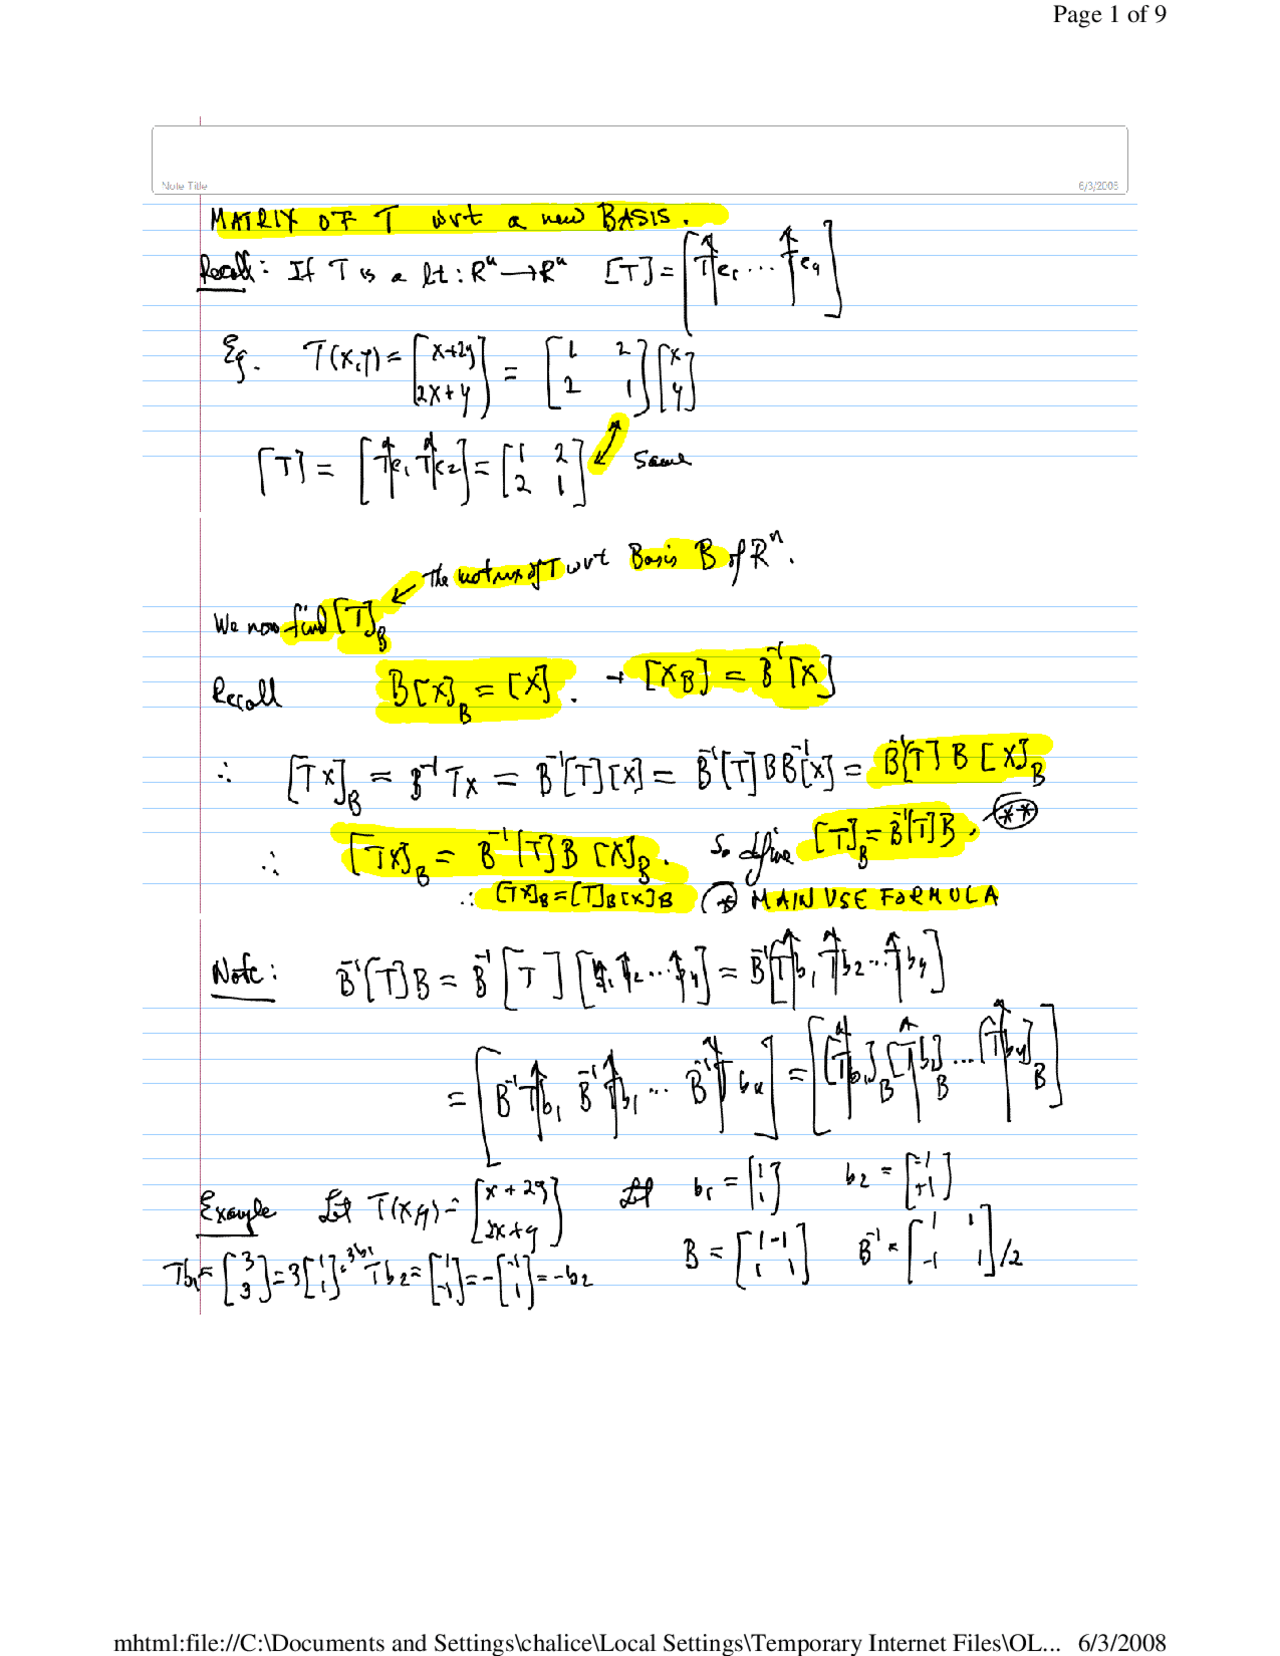 Page 1 of 9
Note Title
6/3/2008
MATRIX OF T wrt a new BASIS.
Recall: If T is a lt: Rⁿ → Rⁿ [T] = [Te₁ ... Teₙ]
Eg. T(x,y) = [x+2y; 2x+y] = [1 2; 2 1] [x; y]
[T] = [Te₁ Te₂] = [1 2; 2 1] same
The matrix of T wrt Basis B of Rⁿ.
We now find [T]_B
Recall B[x]_B = [x]. → [x_B] = B⁻¹[x]
∴ [Tx]_B = B⁻¹Tx = B⁻¹[T][x] = B⁻¹[T]BB⁻¹[x] = B⁻¹[T]B[x]_B
∴ [Tx]_B = B⁻¹[T]B[x]_B. So define [T]_B = B⁻¹[T]B. **
∴ [Tx]_B = [T]_B[x]_B * MAIN USE FORMULA
Note: B⁻¹[T]B = B⁻¹[T][b₁ b₂ ... bₙ] = B⁻¹[Tb₁ Tb₂ ... Tbₙ]
= [B⁻¹Tb₁ B⁻¹Tb₁ ... B⁻¹Tbₙ] = [[Tb₁]_B [Tb₂]_B ... [Tbₙ]_B]
Example Let T(x,y) = [x+2y; 2x+y] Let b₁ = [1; 1] b₂ = [-1; +1]
B = [1 -1; 1 1] B⁻¹ = [1 1; -1 1]/2
Tb₁ = [3; 3] = 3[1; 1] = 3b₁ Tb₂ = [1; -1] = -[-1; 1] = -b₂
mhtml:file://C:\Documents and Settings\chalice\Local Settings\Temporary Internet Files\OL... 6/3/2008